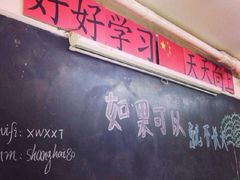 好好学习
天天向上
如果可以
就不
wifi: xwxxT
nm: Shanghai80